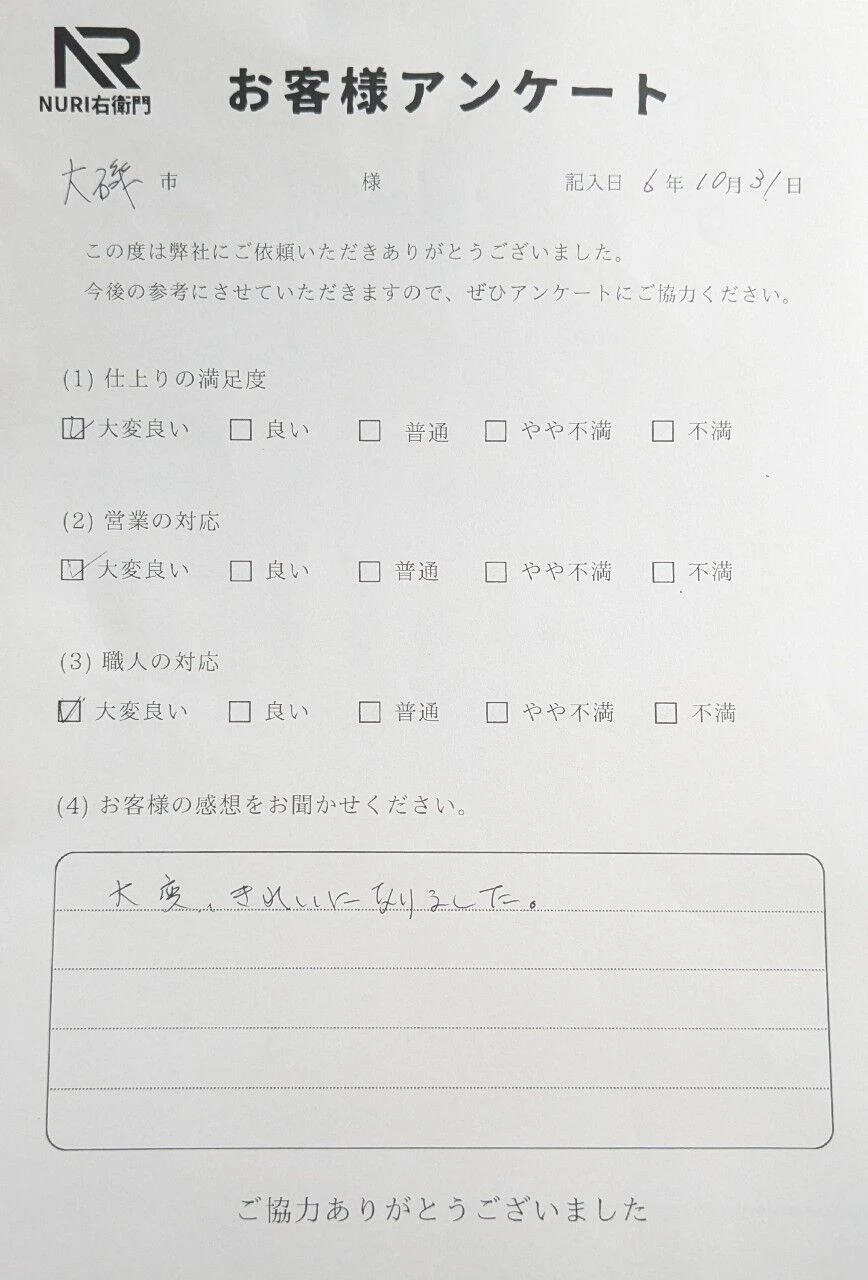 NR
NURI右衛門
お客様アンケート
大磯 市 様 記入日 6年 10月 31日
この度は弊社にご依頼いただきありがとうございました。
今後の参考にさせていただきますので、ぜひアンケートにご協力ください。
(1) 仕上りの満足度
☑ 大変良い □ 良い □ 普通 □ やや不満 □ 不満
(2) 営業の対応
☑ 大変良い □ 良い □ 普通 □ やや不満 □ 不満
(3) 職人の対応
☑ 大変良い □ 良い □ 普通 □ やや不満 □ 不満
(4) お客様の感想をお聞かせください。
大変、きれいになりました。
ご協力ありがとうございました